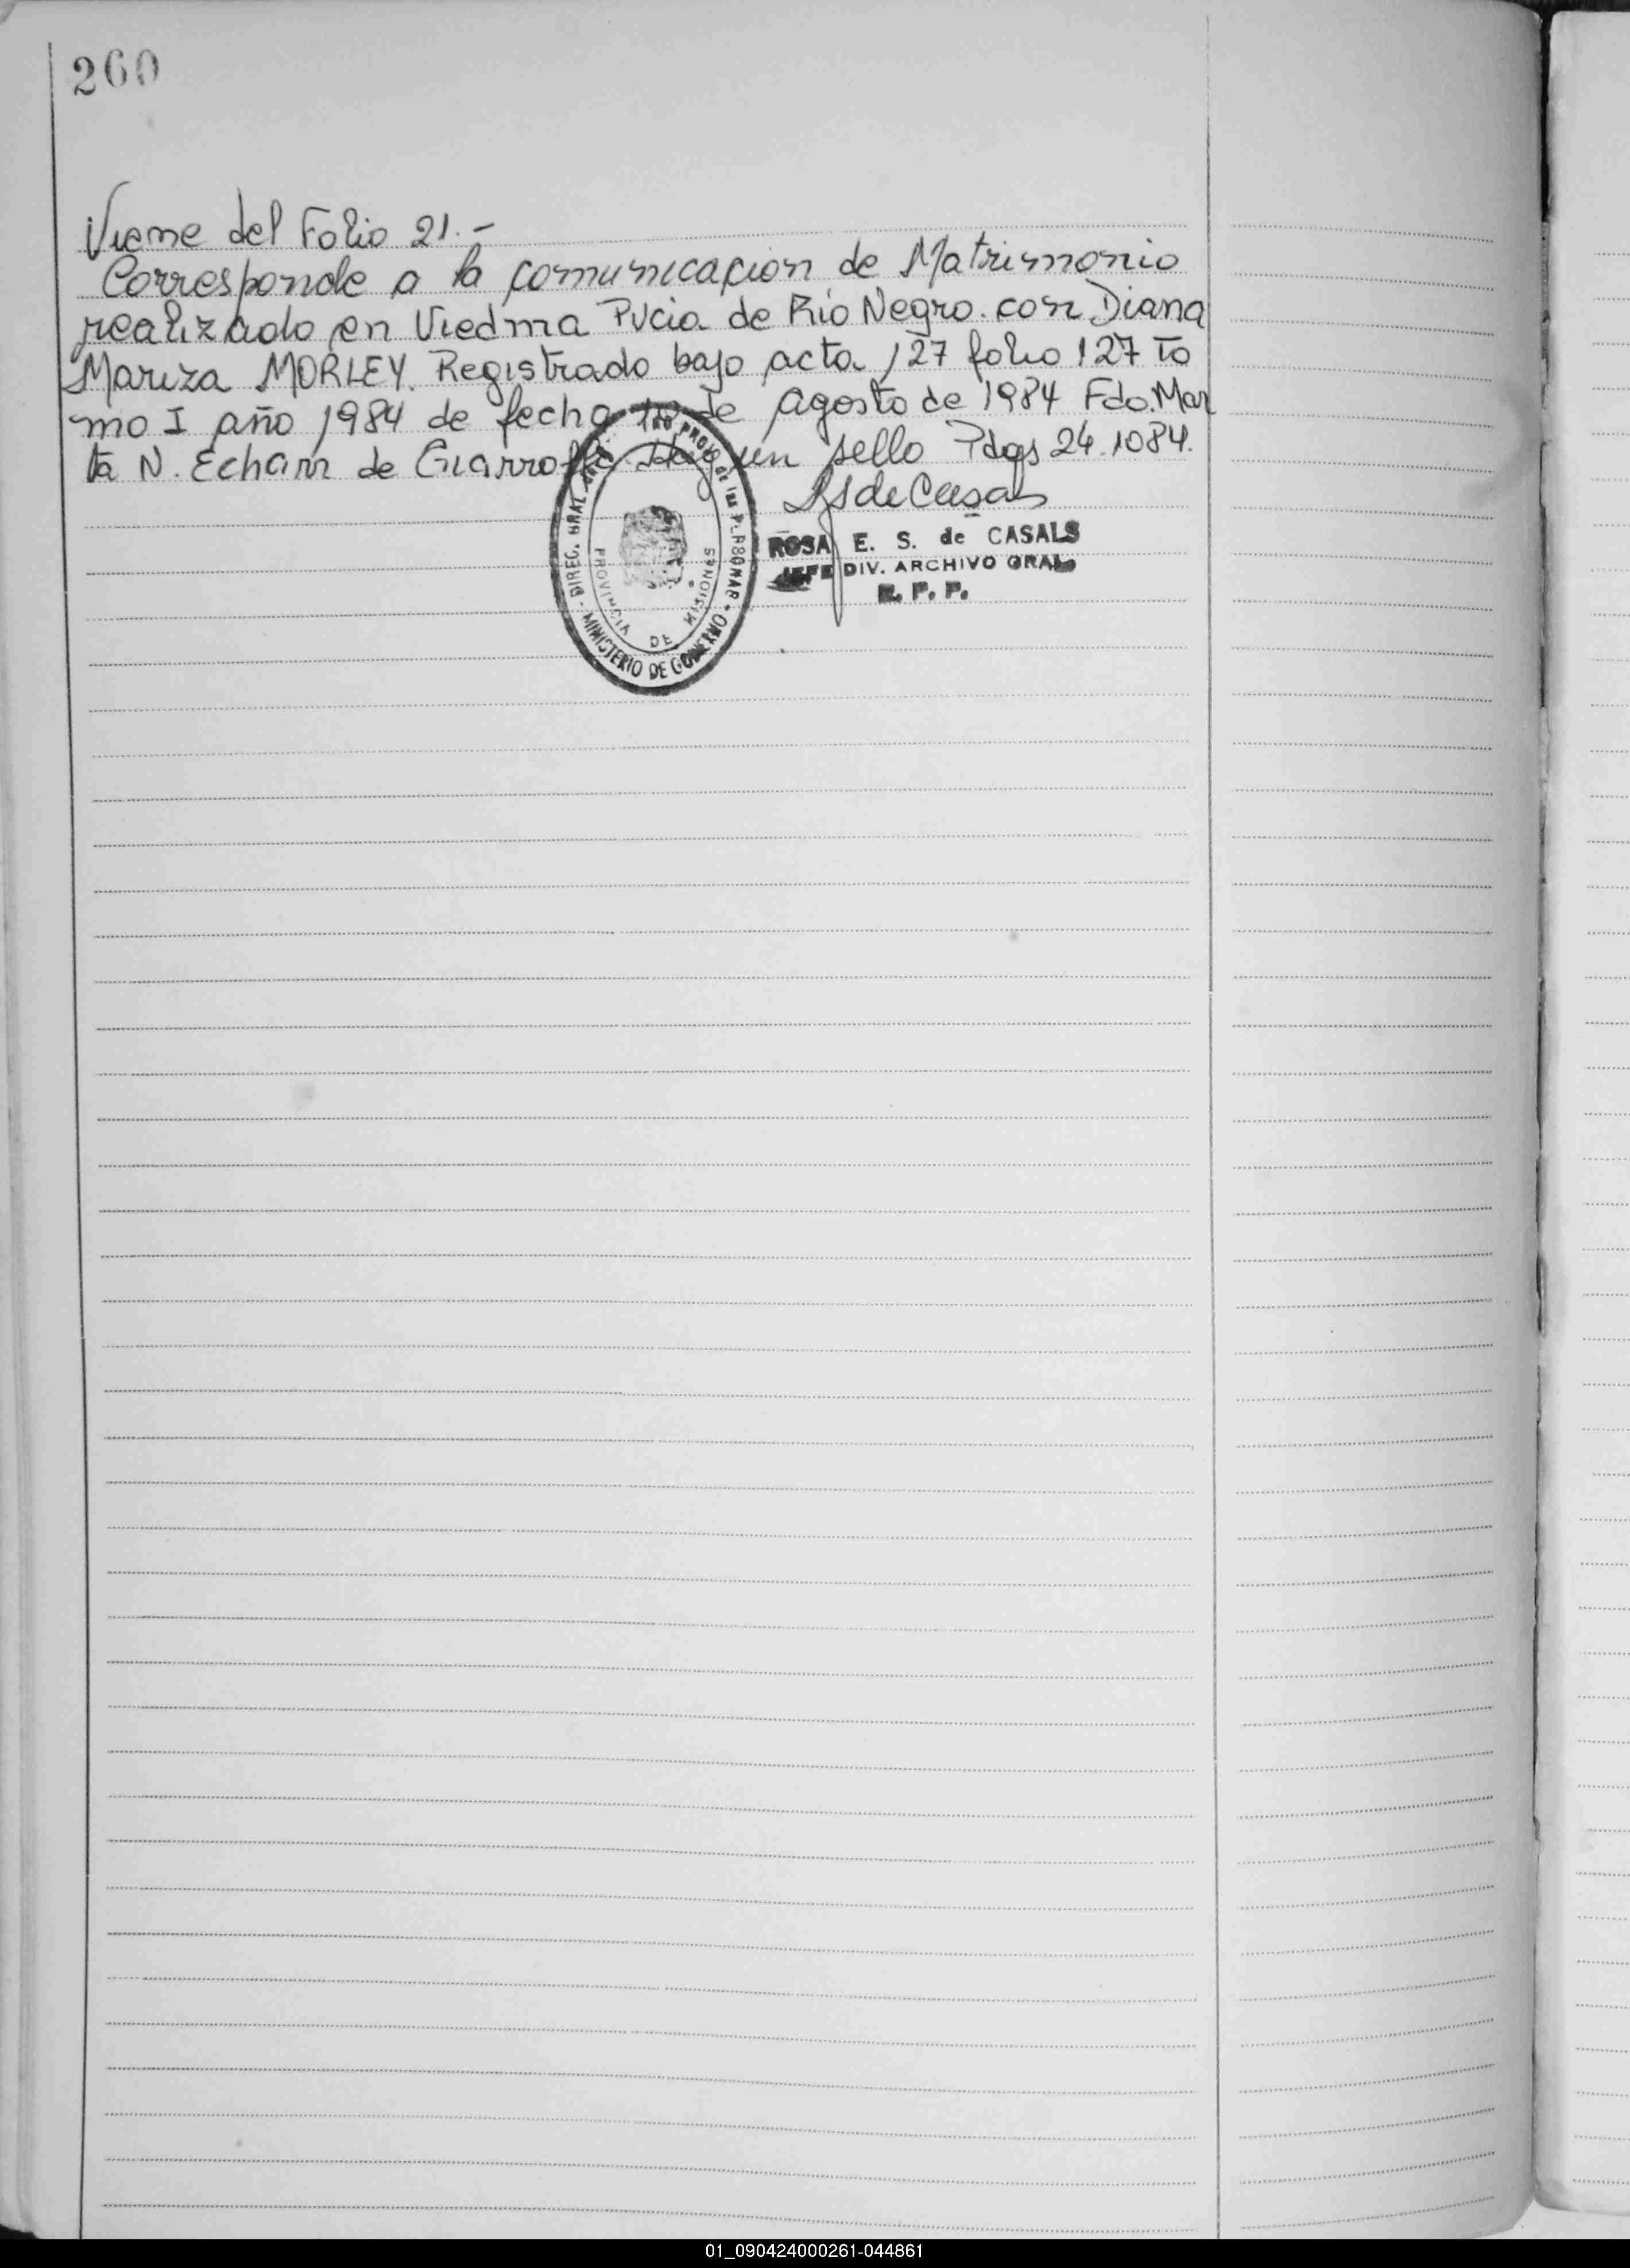 260
Viene del Folio 21.-
Corresponde a la comunicación de Matrimonio
realizado en Viedma Pvcia de Río Negro. con Diana
Mariza MORLEY. Registrado bajo acta 127 folio 127 To
mo I año 1984 de fecha de agosto de 1984 Fdo. Mar
ta N. Echarri de Hay un sello Pdas 24.1084.
DIREC. GRAL de las P.
PROVINCIA DE MISIONES
MINISTERIO DE GOBIERNO
ROSA E. S. de CASALS
JEFE DIV. ARCHIVO GRAL
R. P. P.
01_090424000261-044861